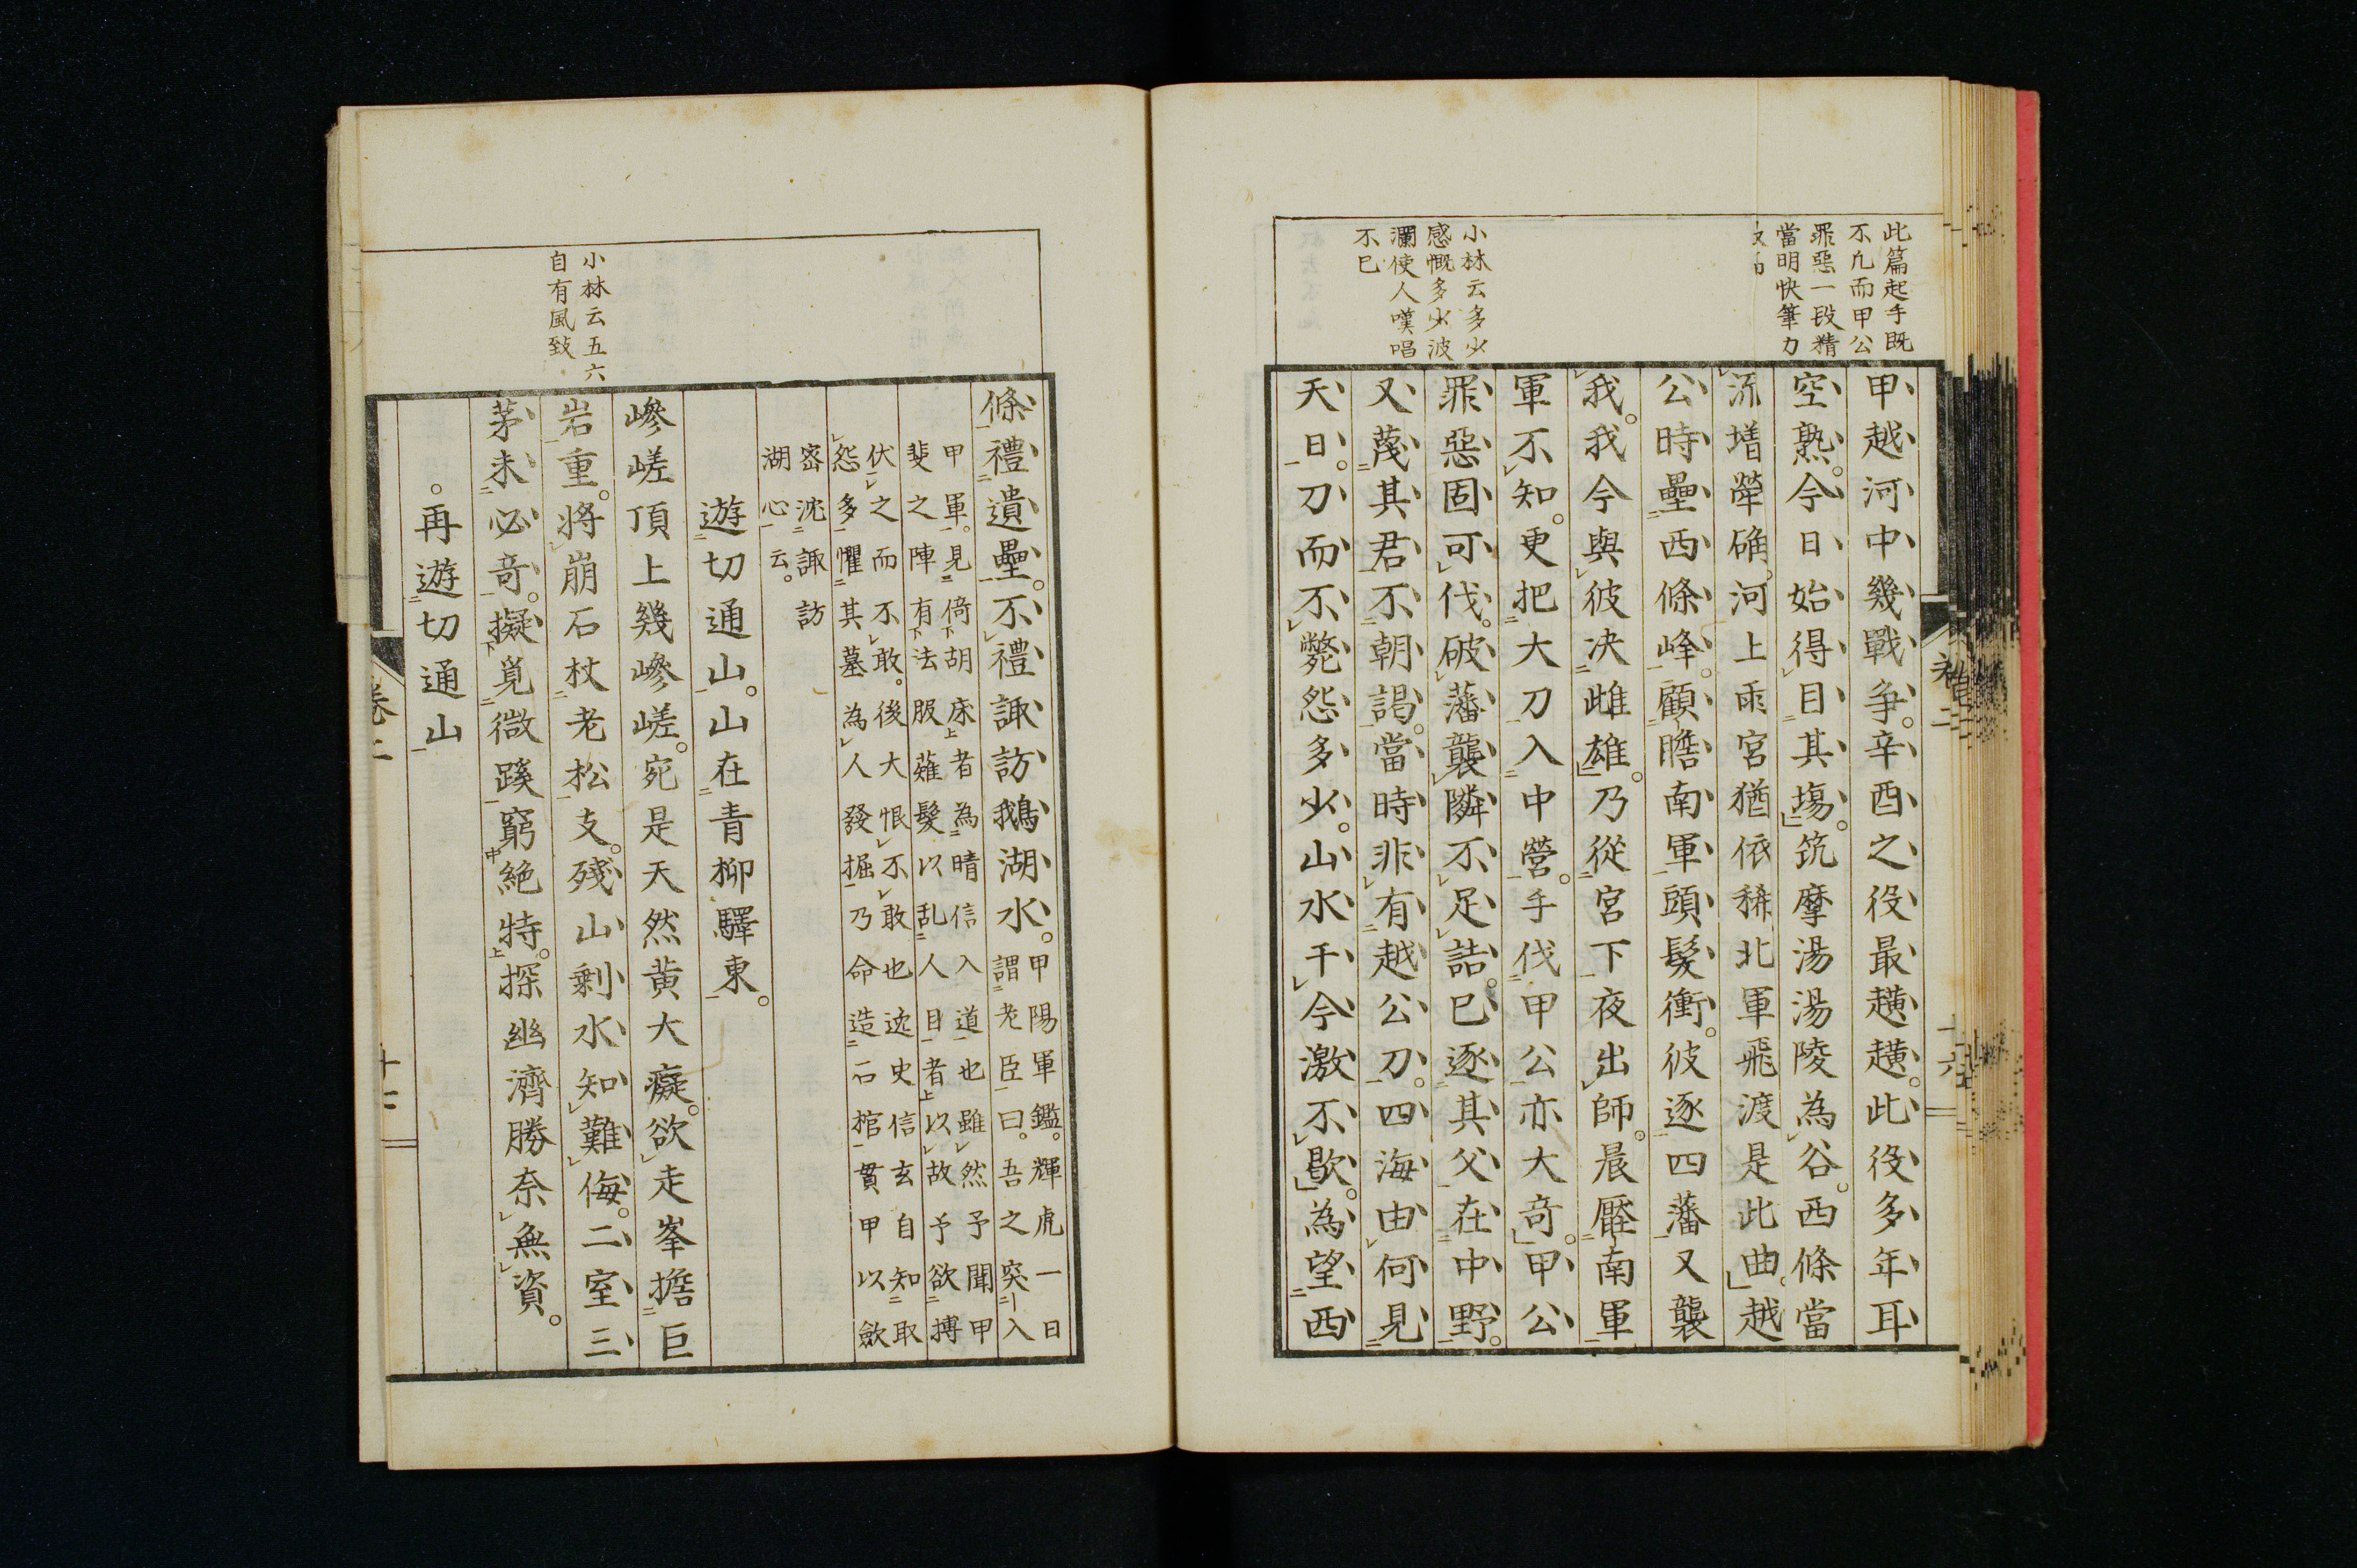 此篇起手既
不凡而甲公
罪惡一段精
當明快筆力
小林云多少
感慨多少波
瀾使人嘆唱
不已
甲越河中幾戰爭。辛酉之役最㒓㒓。此役多年耳
空熟。今日始得目其塲。筑摩湯湯陵為谷。西條當
流墡犖确。河上雨宮猶依稀北軍飛渡是此曲。越
公時壘西條峰。顧瞻南軍頭髮衝。彼逐四藩又襲
我。我今與彼决雌雄。乃從宮下夜出師。晨壓南軍
軍不知。更把大刀入中營。手伐甲公亦大奇。甲公
罪惡固可伐。破藩襲隣不足詰。已逐其父在中野。
又蔑其君不朝謁。當時非有越公刀。四海由何見
天日。刀而不斃怨多少。山水千今激不歇。為望西
卷二
十六
條禮遺壘。不禮諏訪鵝湖水。
甲陽軍鑑。輝虎一日
謂老臣曰。吾之突入
甲軍。見倚胡床者為晴信入道也雖然予聞甲
斐之陣有法服薙髮以乱人目者以故予欲搏
伏之而不敢。後大恨不敢也迯史信玄自知取
怨多懼其墓為人發掘乃命造石棺貫甲以斂
密沈諏訪
湖心云。
遊切通山。山在青柳驛東。
小林云五六
自有風致
嵾嵯頂上幾嵾嵯。宛是天然黃大癡。欲走峯擔巨
岩重。將崩石杖老松支。殘山剩水知難侮。二室三
茅未必奇。擬覓微蹊窮絕特。探幽濟勝奈無資。
再遊切通山
卷二